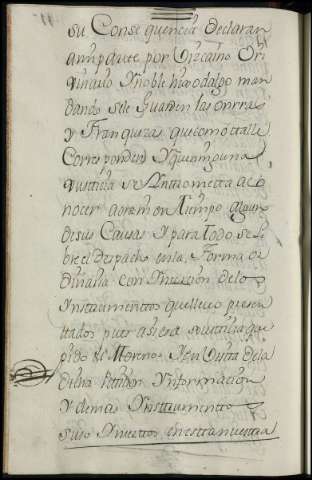 su Consequencia declaran
ami parte por Vizcaino Ori
ginario Y noble hixodalgo man
dando sele guarden las onrras
y Franquizas que como atal le
Corresponden Y que ninguna
Justicia se Antrometta a co
nocer aora in en tiempo algun
de sus Causas Y para todo se li
bre el despacho en la forma or
dinaria con Yncersion de los
Ynstrumentos que llevo presen
ttados pues asi es de Justicia que
pido &c Moreno Y en Vista de la
dicha Petision Ynformacion
Y demas Ynstrumentos
suso Ynsertos en esttra nuestra